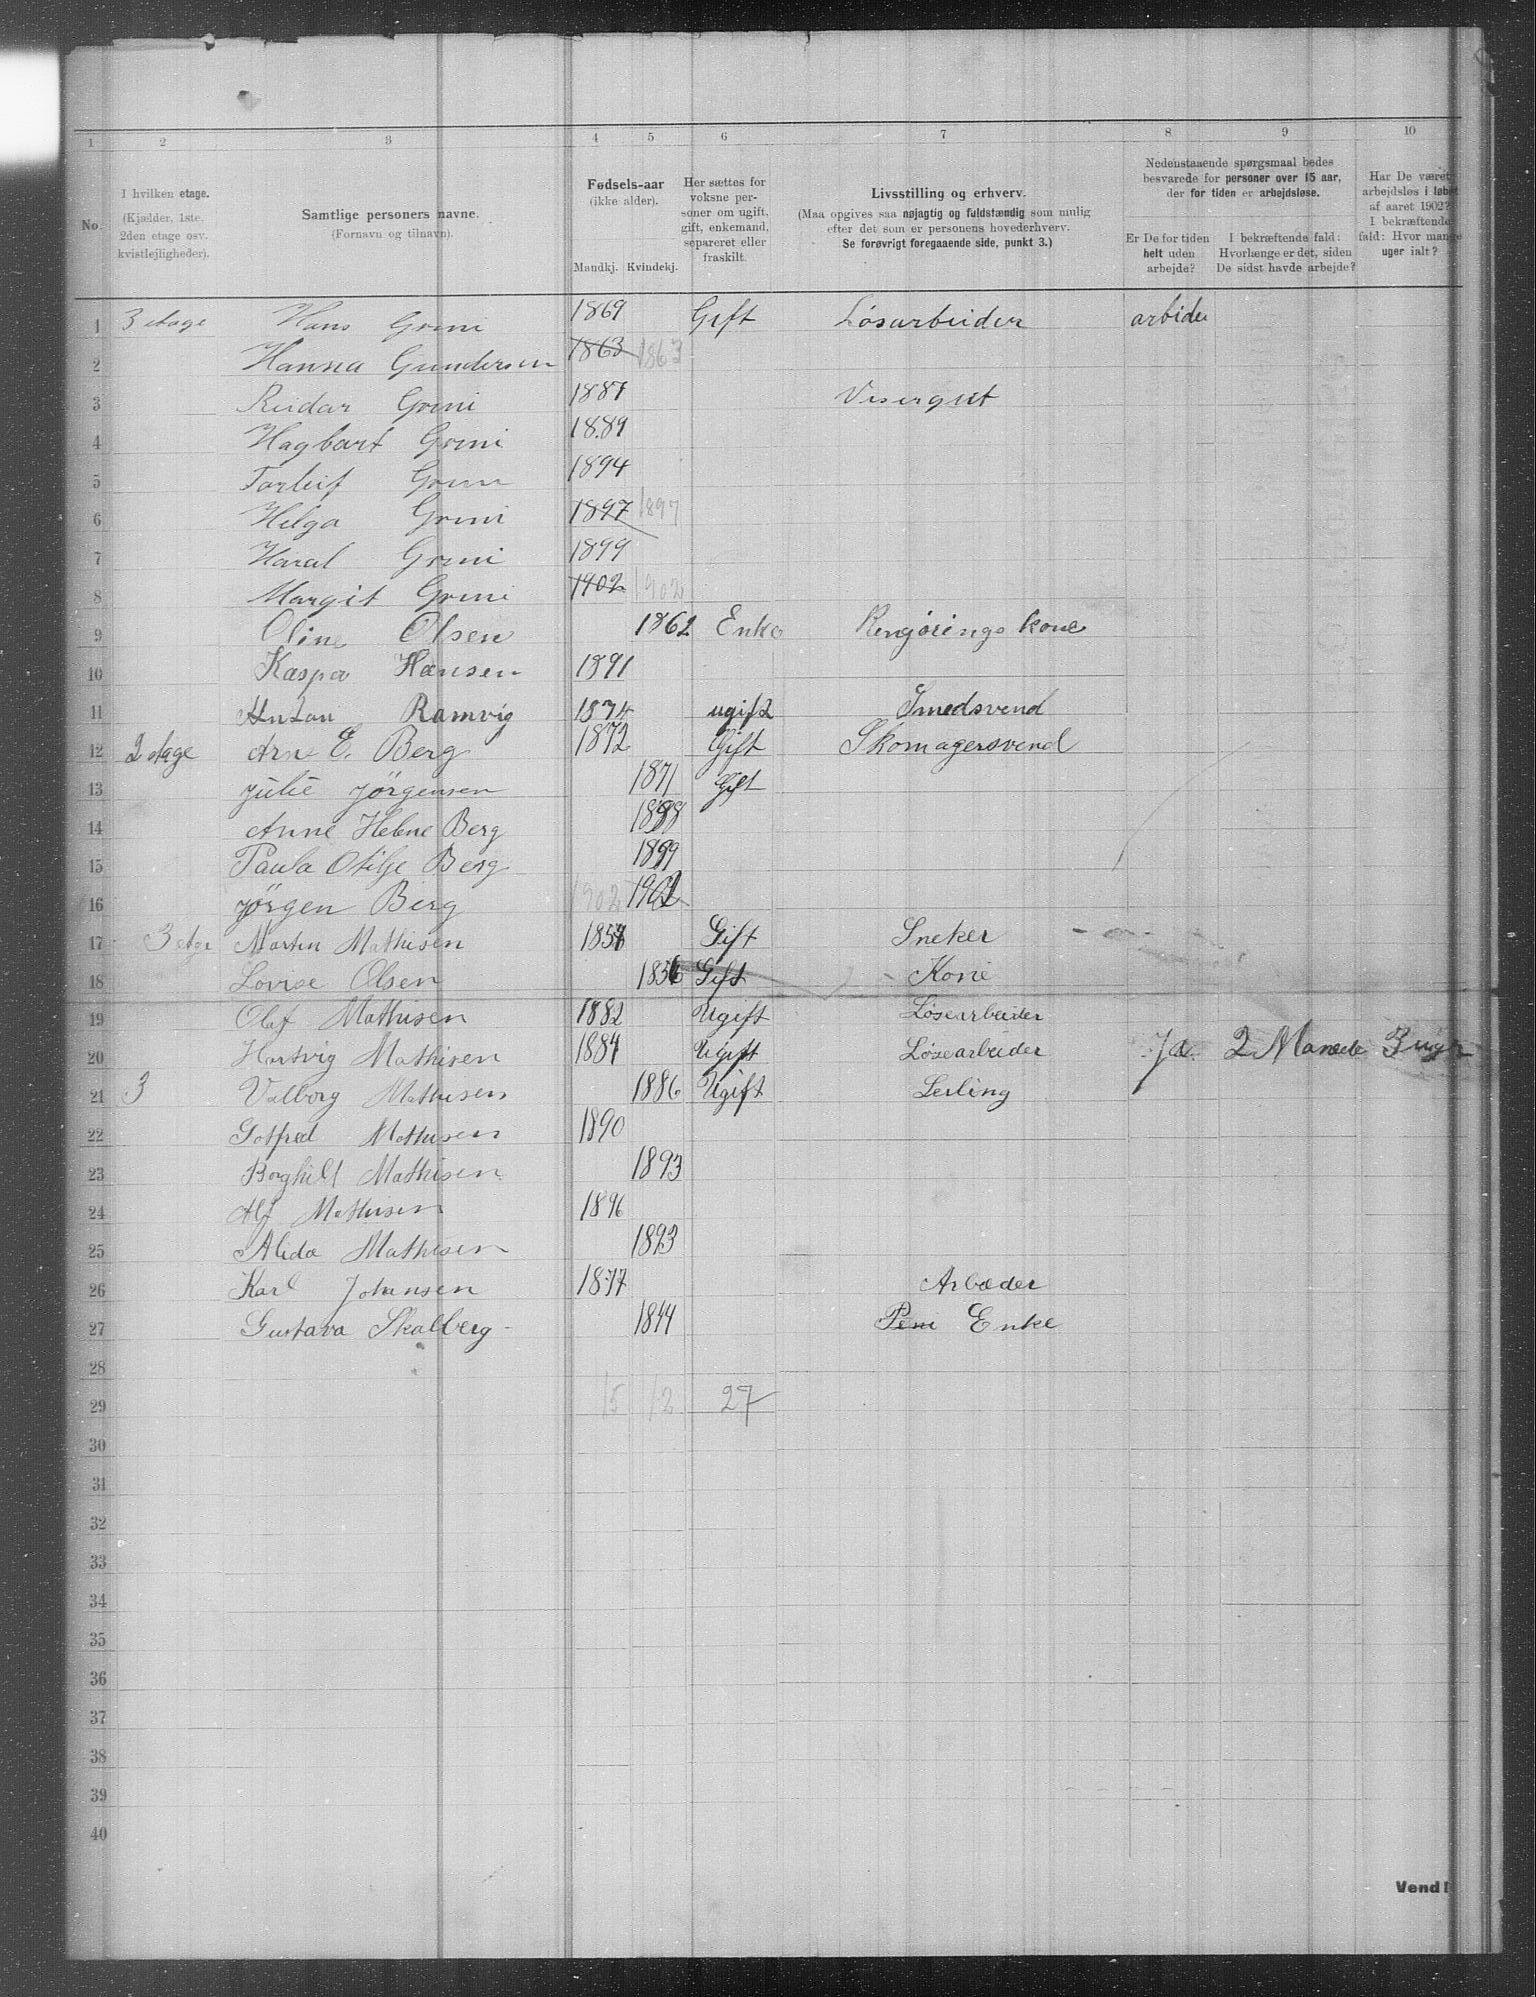 1 2 3 4 5 6 7 8 9 10
No.
I hvilken etage.
(Kjælder, 1ste,
2den etage osv.
kvistlejligheder).
Samtlige personers navne.
(Fornavn og tilnavn).
Fødsels-aar
(ikke alder).
Mandkj. Kvindekj.
Her sættes for
voksne per-
soner om ugift,
gift, enkemand,
separeret eller
fraskilt.
Livsstilling og erhverv.
(Maa opgives saa nøjagtig og fuldstændig som mulig
efter det som er personens hovederhverv.
Se forøvrigt foregaaende side, punkt 3.)
Nedenstaaende spørgsmaal bedes
besvarede for personer over 15 aar,
der for tiden er arbejdsløse.
Er De for tiden
helt uden
arbejde?
I bekræftende fald:
Hvorlænge er det, siden
De sidst havde arbejde?
Har De været
arbejdsløs i løbet
af aaret 1902?
I bekræftende
fald: Hvor mange
uger ialt?
1 3 etage Hans Grini 1869 Gift Løsarbeider arbider
2 Hanna Gundersen 1863 1863
3 Reidar Grini 1887 Visergut
4 Hagbart Grini 1889
5 Torleif Grini 1894
6 Helga Grini 1897 1897
7 Haral Grini 1899
8 Margit Grini 1902 1902
9 Oline Olsen 1862 Enke Rengørings kone
10 Kaspar Hansen 1891
11 Anton Ramvig 1874 ugift Smedsvend
12 2 etage Arne E. Berg 1872 Gift Skomagersvend
13 Julie Jörgensen 1871 Gift
14 Anne Helene Berg 1898
15 Paula Otilje Berg 1899
16 Jörgen Berg 1902 1902
17 3 etge Martin Mathisen 1858 Gift Sneker
18 Lovise Olsen 1856 Gift Kone
19 Olaf Mathisen 1882 Ugift Løsearbeider
20 Hartvig Mathisen 1884 Ugift Løsearbeider Ja. 2 Manede 3 uger
21 3 Valborg Mathisen 1886 Ugift Lerling
22 Gotfred Mathisen 1890
23 Borghild Mathisen 1893
24 Alf Mathisen 1896
25 Alida Mathisen 1893
26 Karl Johansen 1877 Arbæder
27 Gustava Skalberg 1844 Enke
28
29 15 12 27
30
31
32
33
34
35
36
37
38
39
40
Vend!